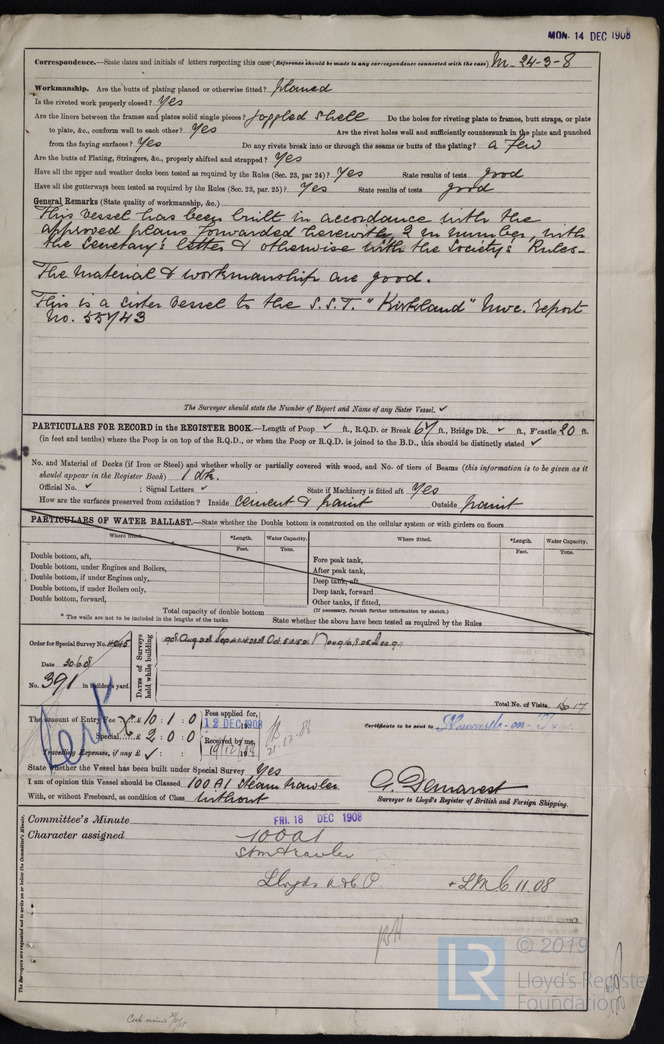 MON. 14 DEC 1908
Correspondence.—State dates and initials of letters respecting this case (Reference should be made to any correspondence connected with the case) M. 24-3-8
Workmanship. Are the butts of plating planed or otherwise fitted? planed
Is the riveted work properly closed? Yes
Are the liners between the frames and plates solid single pieces? joggled shell Do the holes for riveting plate to frames, butt straps, or plate
to plate, &c., conform well to each other? Yes Are the rivet holes well and sufficiently countersunk in the plate and punched
from the faying surfaces? Yes Do any rivets break into or through the seams or butts of the plating? a few
Are the butts of Plating, Stringers, &c., properly shifted and strapped? Yes
Have all the upper and weather decks been tested as required by the Rules (Sec. 23, par 24)? Yes State results of tests good
Have all the gutterways been tested as required by the Rules (Sec. 23, par. 25)? Yes State results of tests good
General Remarks (State quality of workmanship, &c.)
This vessel has been built in accordance with the
approved plans forwarded herewith, 2 in number, with
the Secretary's letter & otherwise with the Society's Rules—
The material & workmanship are good.
This is a sister vessel to the S.S.T. "Kirkland" Nwc. report
No. 55743
The Surveyor should state the Number of Report and Name of any Sister Vessel. ✓
PARTICULARS FOR RECORD in the REGISTER BOOK.—Length of Poop ✓ ft., R.Q.D. or Break 67 ft., Bridge Dk. ✓ ft., F'castle 20 ft.
(in feet and tenths) where the Poop is on top of the R.Q.D., or when the Poop or R.Q.D. is joined to the B.D., this should be distinctly stated ✓
No. and Material of Decks (if Iron or Steel) and whether wholly or partially covered with wood, and No. of tiers of Beams (this information is to be given as it
should appear in the Register Book) 1 dk.
Official No. ✓ ; Signal Letters ✓ State if Machinery is fitted aft Yes
How are the surfaces preserved from oxidation? Inside Cement & paint Outside paint
PARTICULARS OF WATER BALLAST.—State whether the Double bottom is constructed on the cellular system or with girders on floors
Where fitted. *Length. Water Capacity. Where fitted. *Length. Water Capacity.
Feet. Tons. Feet. Tons.
Double bottom, aft, Fore peak tank,
Double bottom, under Engines and Boilers, After peak tank,
Double bottom, if under Engines only, Deep tank, aft
Double bottom, if under Boilers only, Deep tank, forward
Double bottom, forward, Other tanks, if fitted,
(If necessary, furnish further information by sketch.)
Total capacity of double bottom
* The wells are not to be included in the lengths of the tanks. State whether the above have been tested as required by the Rules
Order for Special Survey No. 4045
Date 20.6.08
No. 391 in builder's yard.
Dates of Surveys held while building
Total No. of Visits 17
The amount of Entry Fee £ 10 : 1 : 0 Fees applied for,
12 DEC 1908
Special £ 2 : 0 : 0 Received by me,
Travelling Expenses, if any £ ✓ : 19/12/08
21.12.08
Certificate to be sent to Newcastle-on-Tyne.
State whether the Vessel has been built under Special Survey Yes
I am of opinion this Vessel should be Classed 100 A1 Steam trawler
With, or without Freeboard, as condition of Class Without
G. Demarest
Surveyor to Lloyd's Register of British and Foreign Shipping.
Committee's Minute FRI. 18 DEC 1908
Character assigned 100A1
Stm trawler
Lloyds A & C P. + LMC. 11.08
The Surveyors are requested not to write on or below the Committee's Minute.
LR
© 2019
Lloyd's Register
Foundation